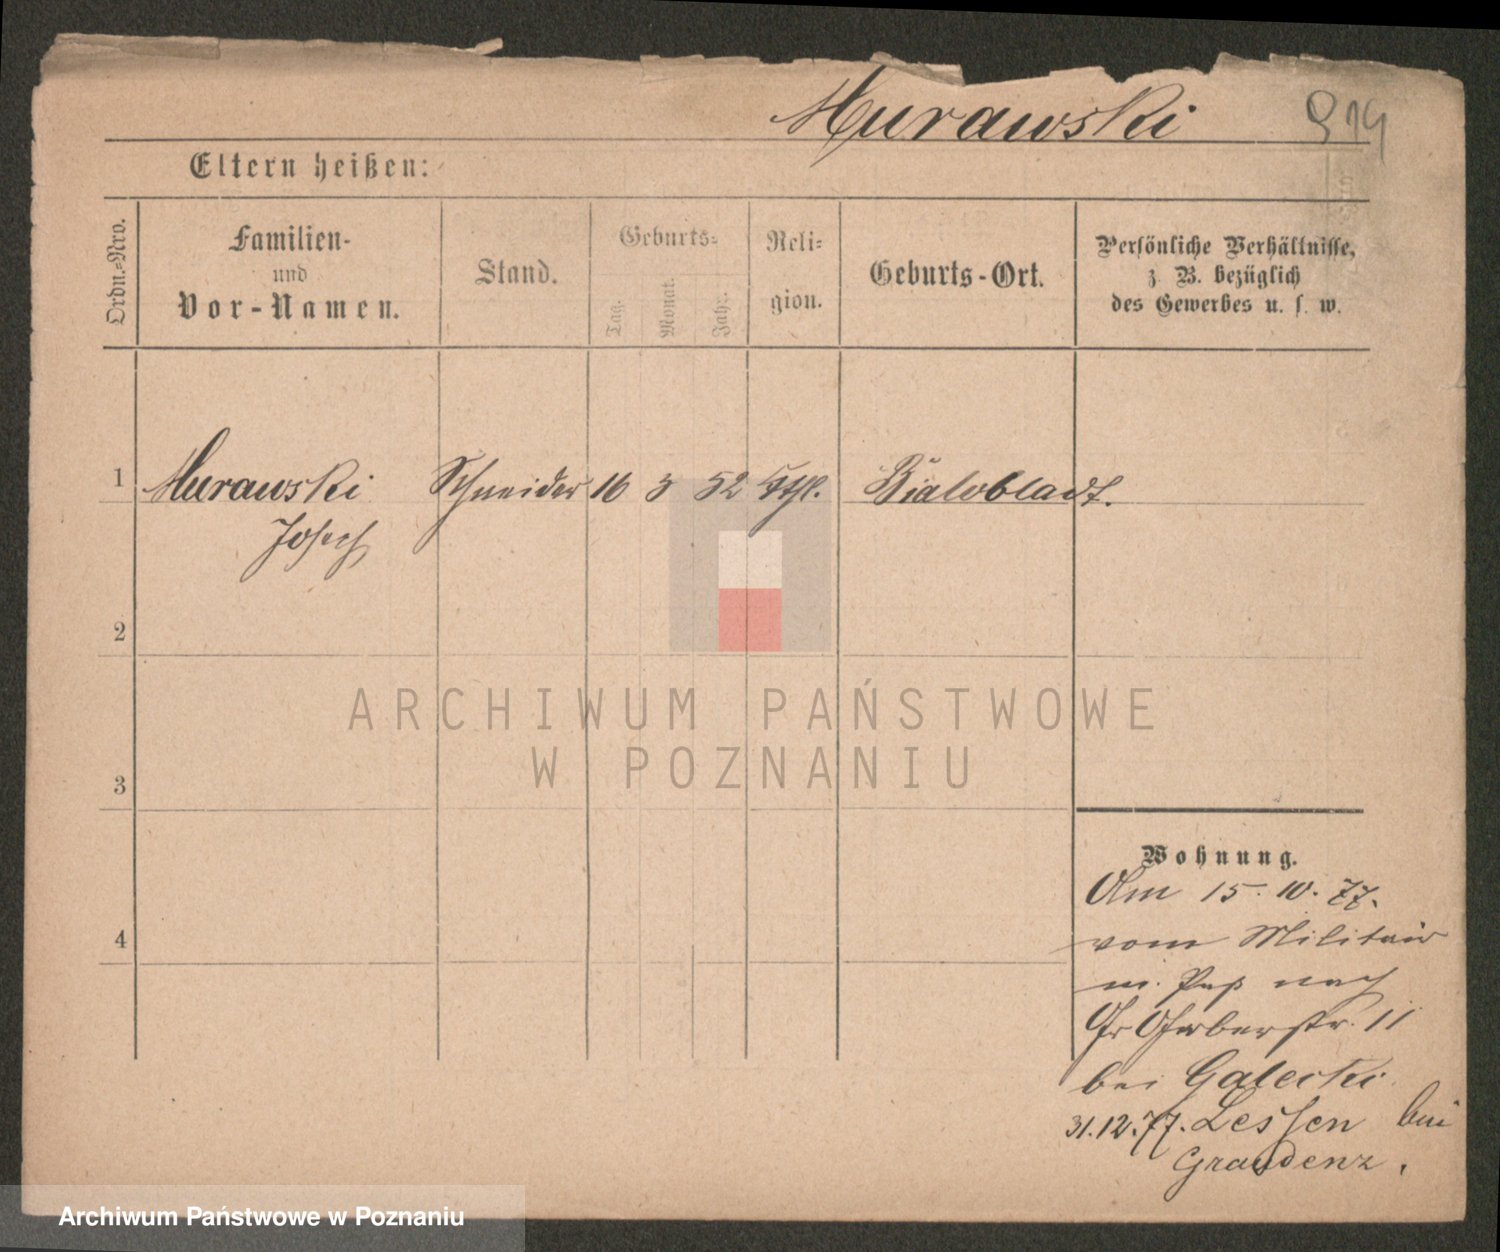 Murawski
919
Eltern heißen:
Ordn.=Nro.
Familien-
und
Vor-Namen.
Stand.
Geburts=
Tag.
Monat.
Jahr.
Reli=
gion.
Geburts-Ort.
Persönliche Verhältnisse,
z. B. bezüglich
des Gewerbes u. s. w.
1 Murawski Schneider 16 3 52 kthl. Bialobladt.
Josef
2
3
4
Wohnung.
Am 15. 10. 77.
vom Militair
m. Paß nach
Gr Gerberstr. 11
bei Galecki
31.12.77. Lessen bei
Graudenz.
ARCHIWUM PAŃSTWOWE
W POZNANIU
Archiwum Państwowe w Poznaniu